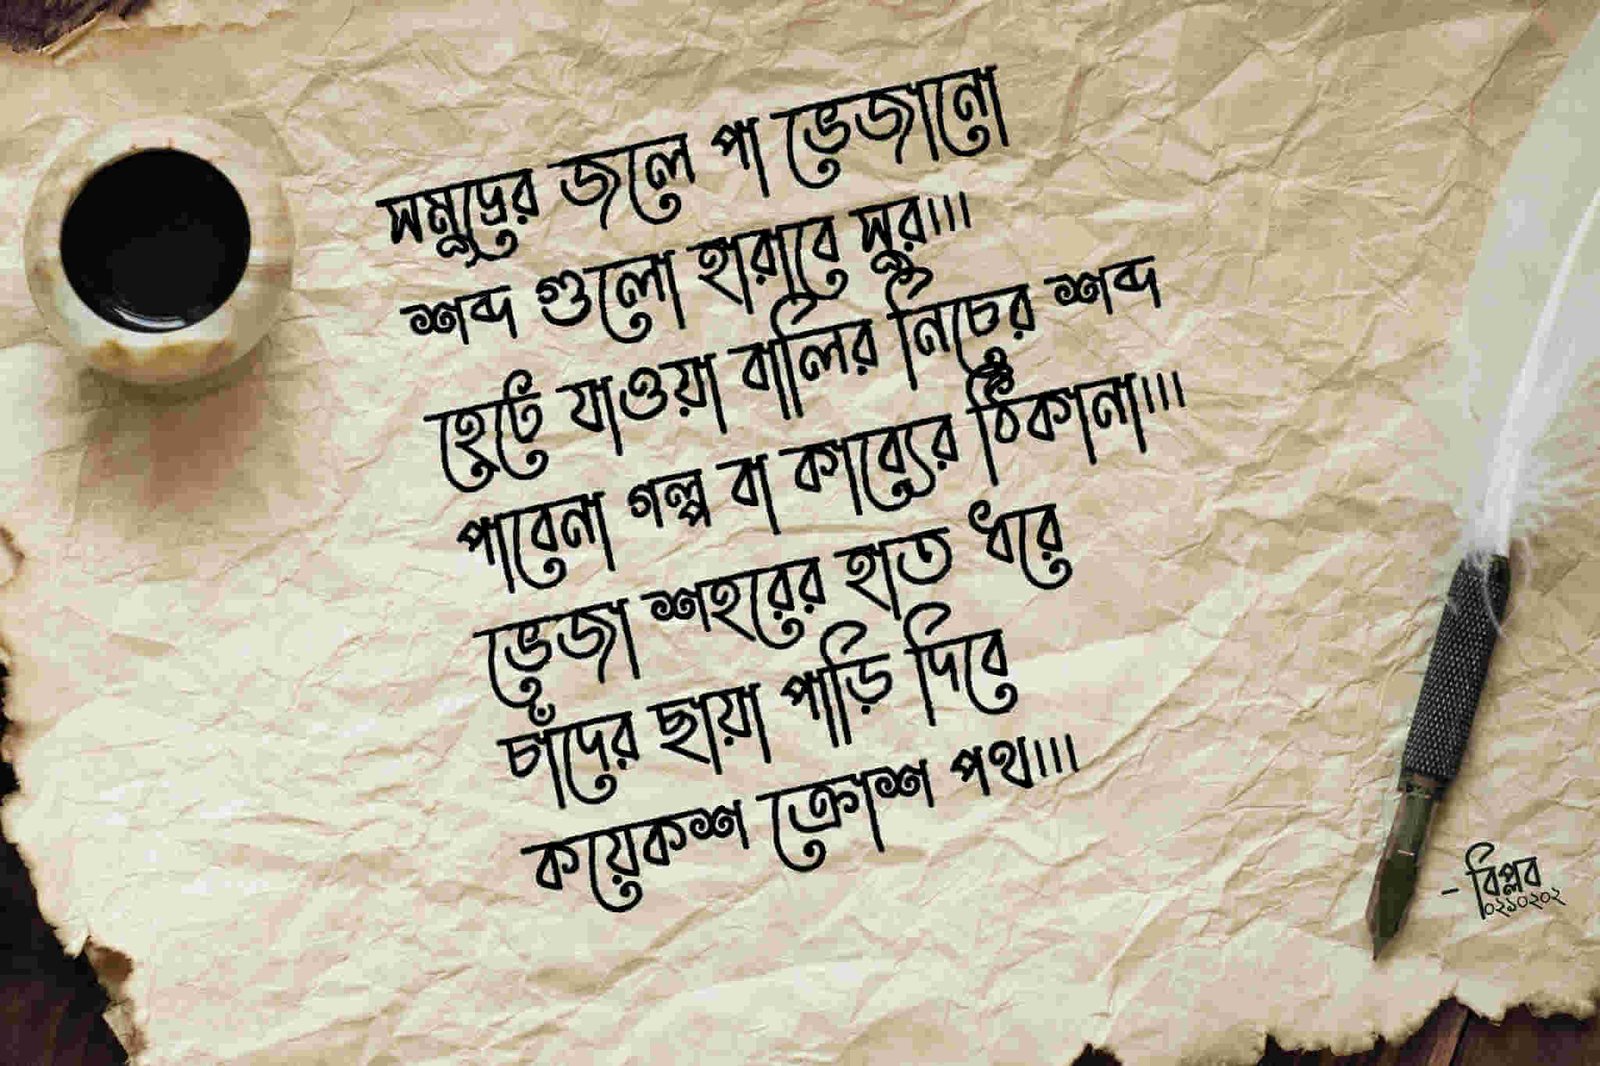 সমূদ্রের জলে পা ভেজানো
শব্দ গুলো হারাবে সুর।।।
হেটে যাওয়া বালির নিচের শব্দ
পাবেনা গল্প বা কাব্যের ঠিকানা।।।
ভেজা শহরের হাত ধরে
চাঁদের ছায়া পাড়ি দিবে
কয়েকশ ক্রোশ পথ।।।
- বিপ্লব
০২১০২০২